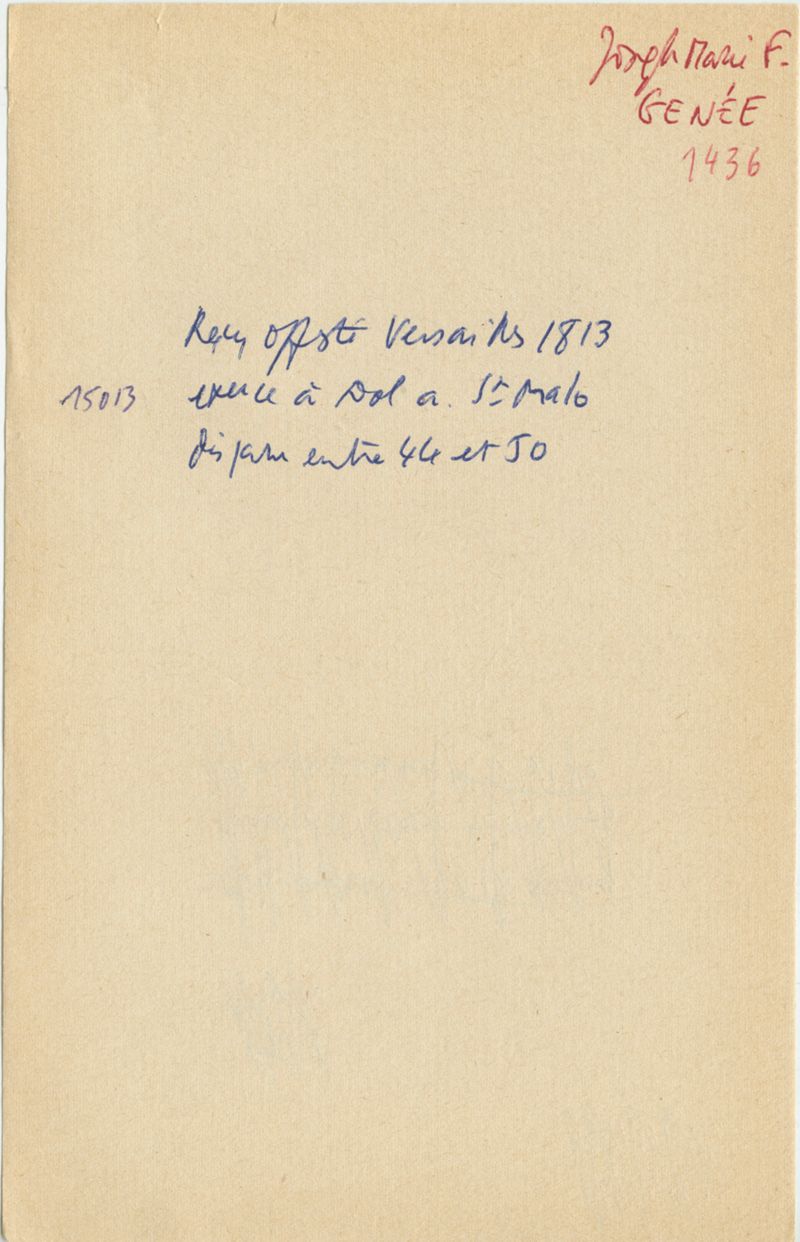 Joseph Marie F.
GENÉE
1436
Reçu offsté Versailles 1813
15013 exerce à Dol a. St Malo
disparu entre 44 et 50